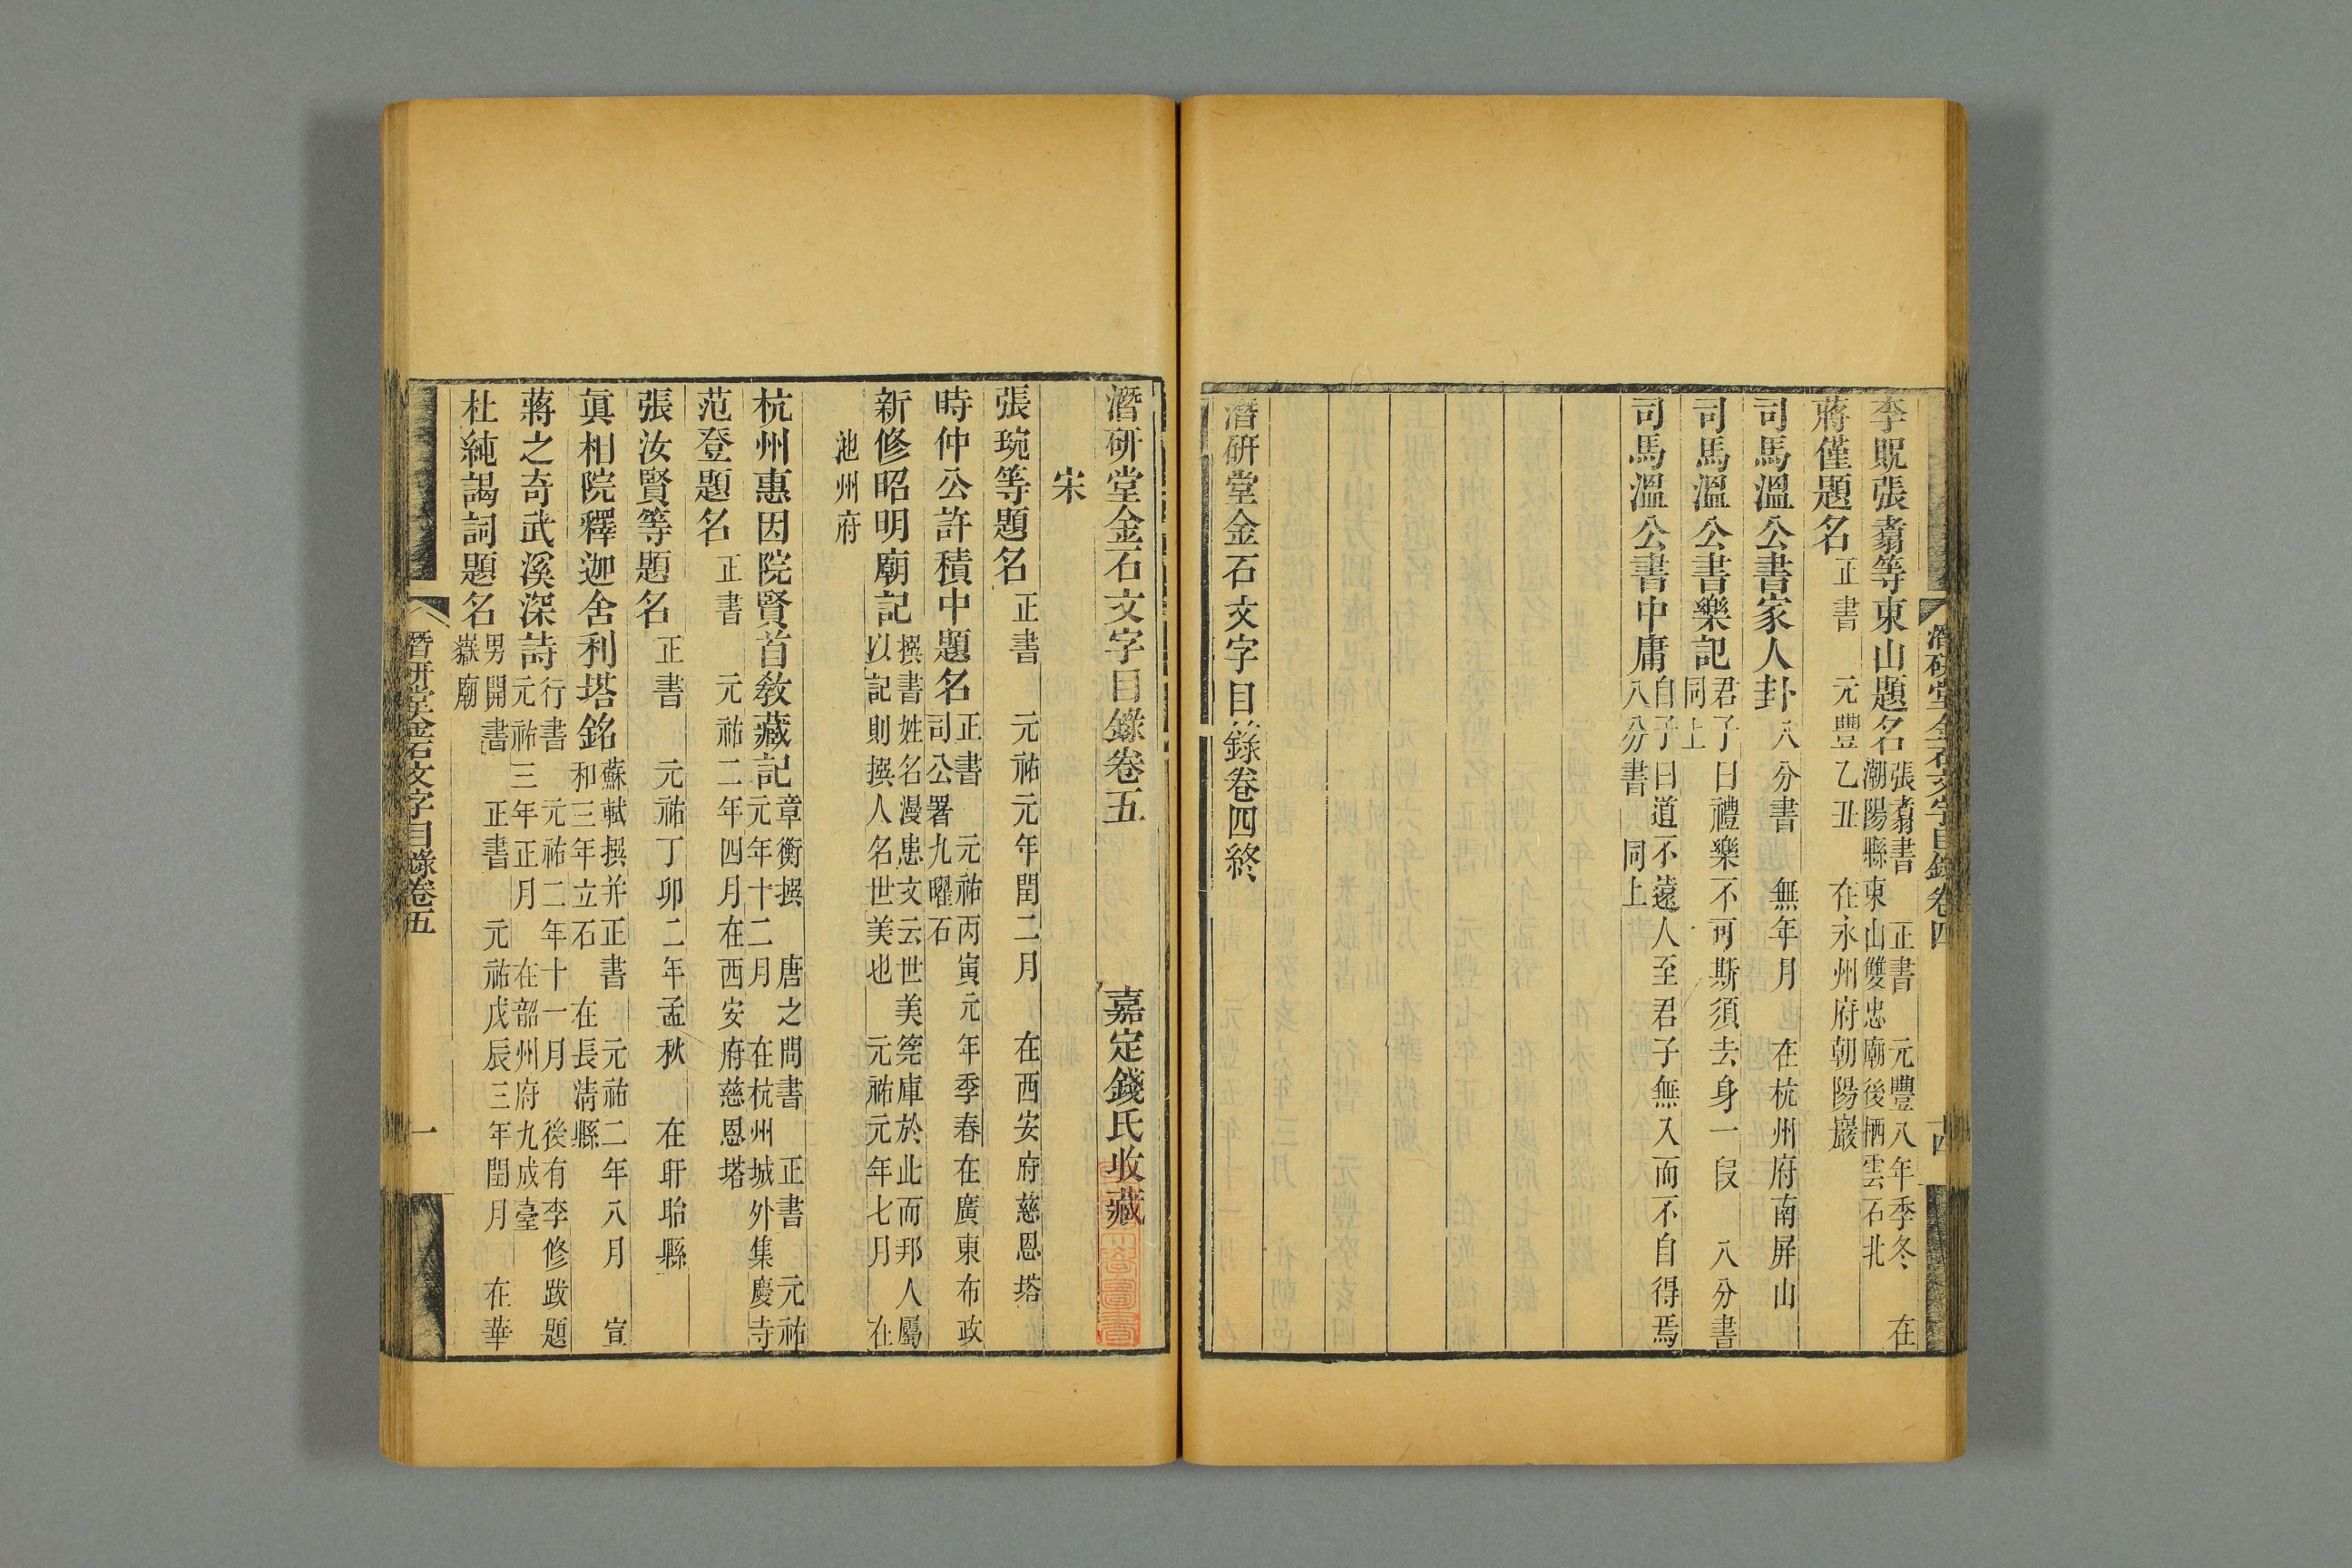 李貺張翥等東山題名張翥書 正書 元豐八年季冬 在
潮陽縣東山雙忠廟後栖雲石北
蔣僅題名正書 元豐乙丑 在永州府朝陽巖
司馬溫公書家人卦八分書 無年月 在杭州府南屏山
司馬溫公書樂記君子曰禮樂不可斯須去身一段 八分書
同上
司馬溫公書中庸自子曰道不遠人至君子無入而不自得焉
八分書 同上
潛研堂金石文字目錄卷四終
潛研堂金石文字目錄卷四
十四
潛研堂金石文字目錄卷五 嘉定錢氏收藏
宋
張琬等題名正書 元祐元年閏二月 在西安府慈恩塔
時仲公許積中題名正書 元祐丙寅元年季春在廣東布政
司公署九曜石
新修昭明廟記撰書姓名漫患文云世美筦庫於此而邦人屬
以記則撰人名世美也 元祐元年七月 在
池州府
杭州惠因院賢首教藏記章衡撰 唐之問書 正書 元祐
元年十二月 在杭州城外集慶寺
范登題名正書 元祐二年四月在西安府慈恩塔
張汝賢等題名正書 元祐丁卯二年孟秋 在盱眙縣
眞相院釋迦舍利塔銘蘇軾撰并正書 元祐二年八月 宣
和三年立石 在長淸縣
蔣之奇武溪深詩行書 元祐二年十一月 後有李修跋題
元祐三年正月 在韶州府九成臺
杜純謁詞題名男開書 正書 元祐戊辰三年閏月 在華
嶽廟
潛研堂金石文字目錄卷五
一